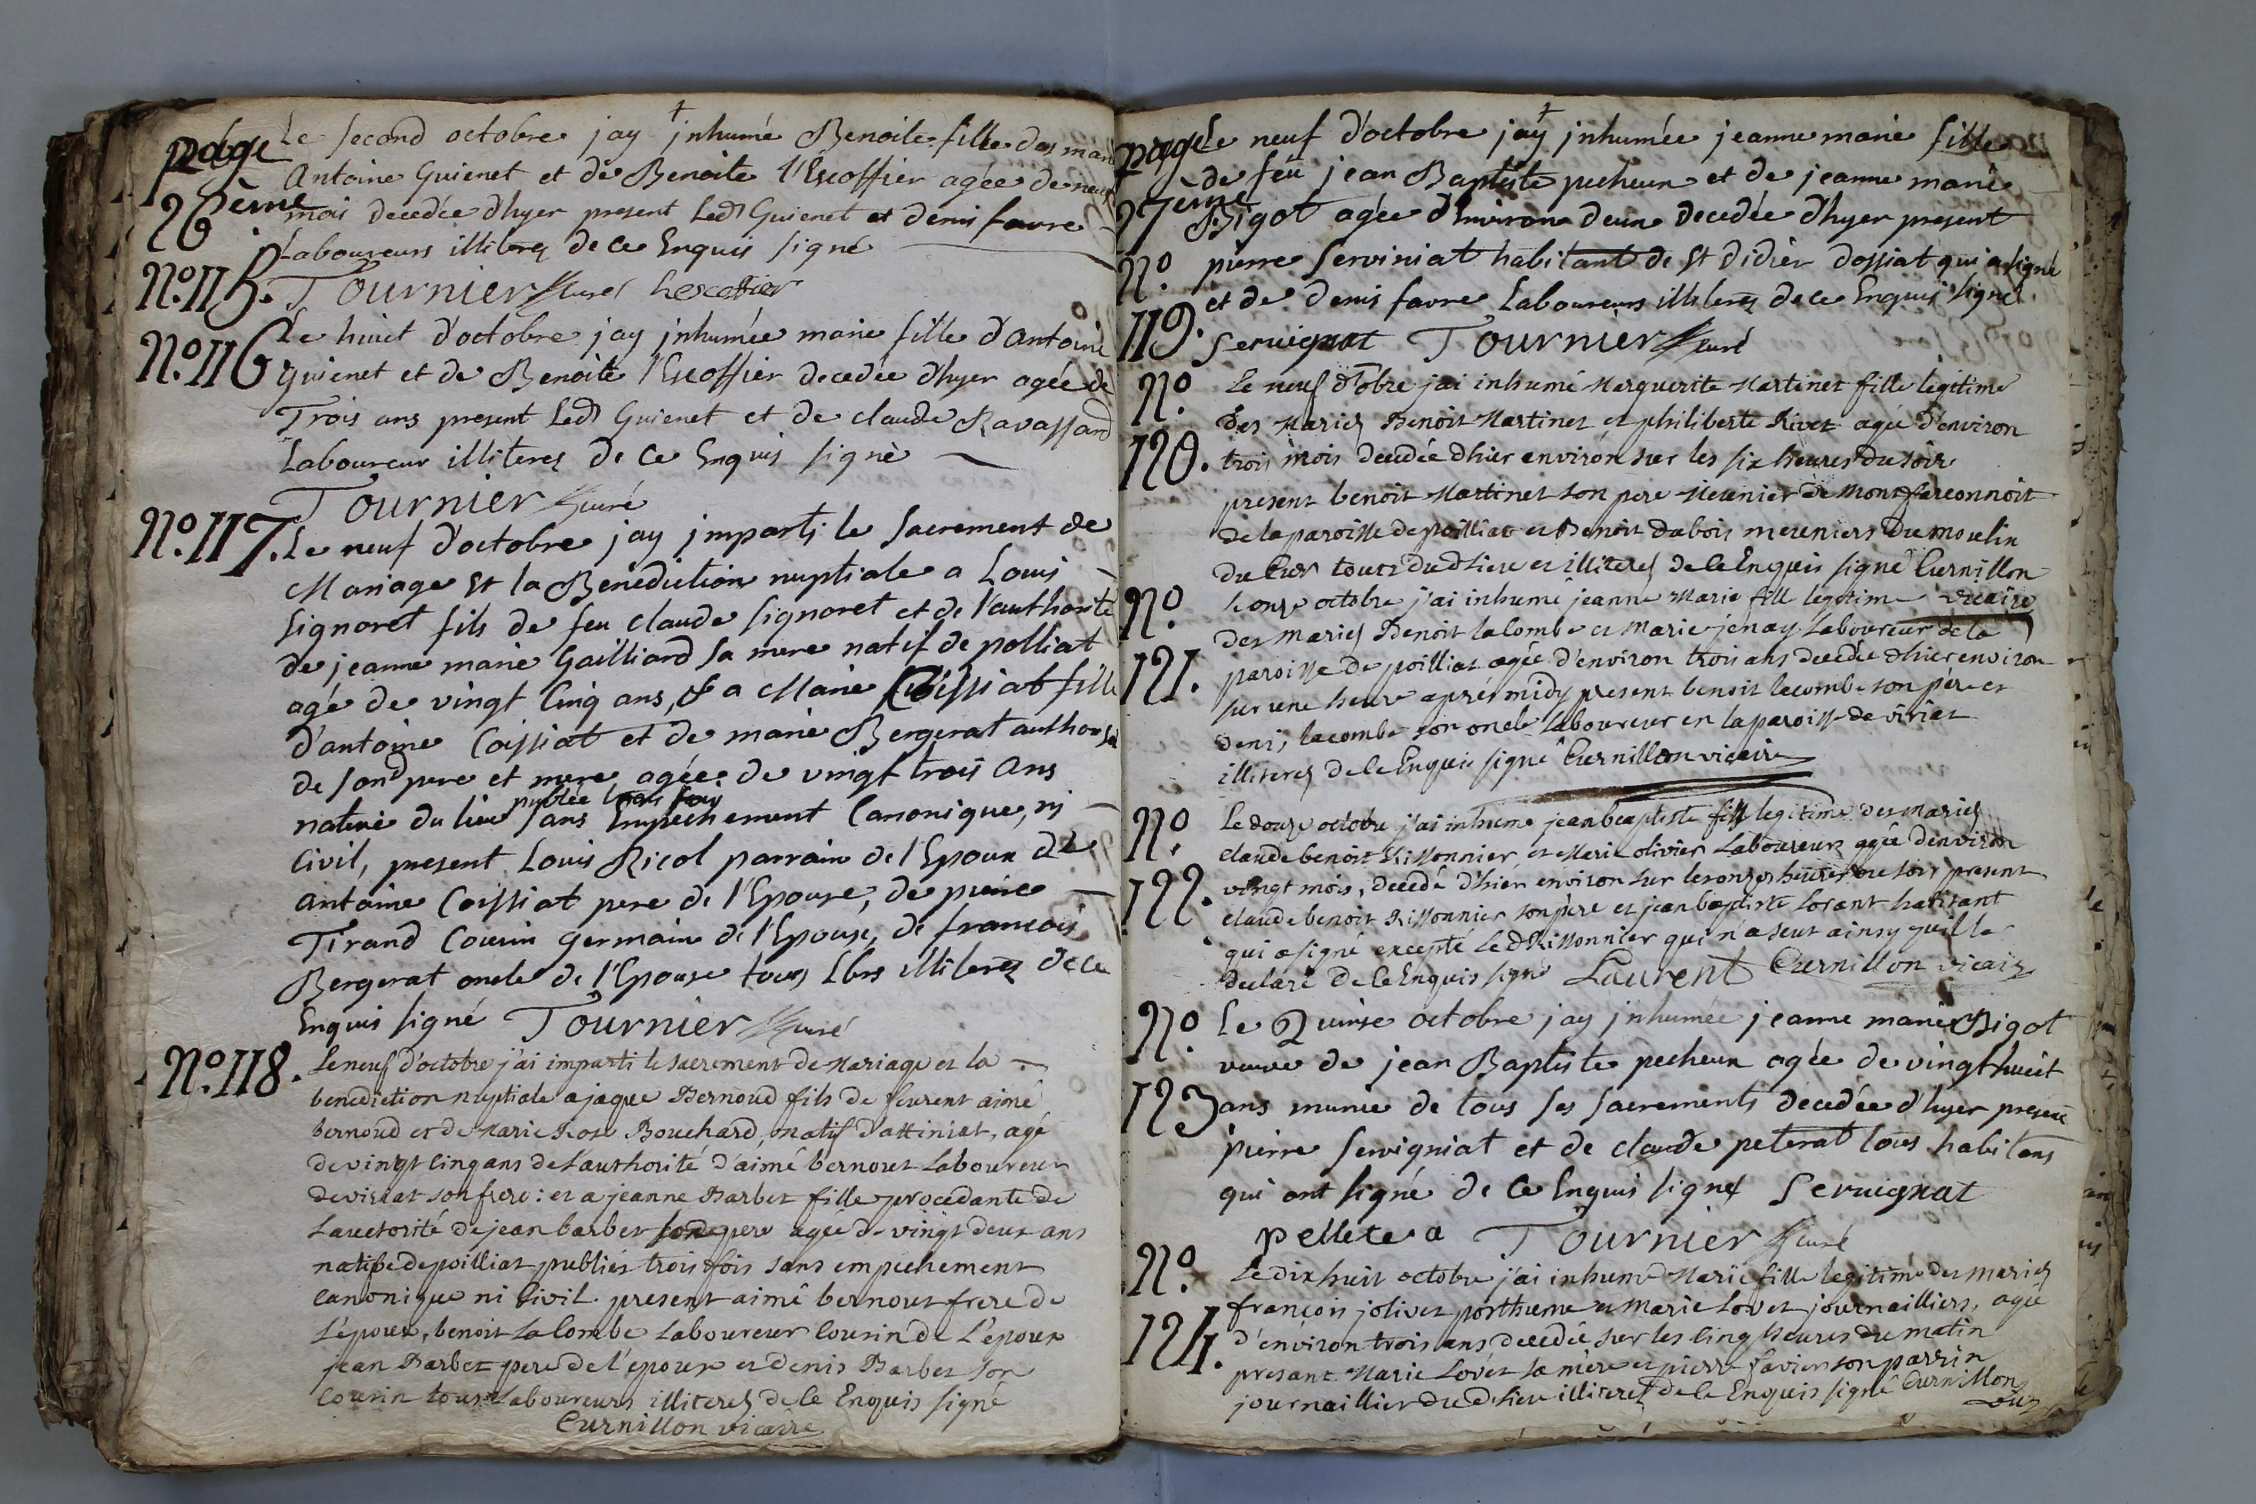 page
26ème
Le second octobre jay inhumé Benoite fille des mari
Antoine Guienet et de Benoite l'Escoffier agée de neuf
mois decedée d'hyer present led Guienet et denis favre
Laboureurs illiterez de ce Enquis signé
N.o 115.
Tournier Curé Lescoffier
N.o 116
Le huict d'octobre jay jnhumée marie fille d'antoine
Guienet et de Benoite l'Escoffier decedée d'hyer agée de
Trois ans present led Guienet et de claude Ravassard
Laboureur illiterez de ce Enquis signé
Tournier Curé
N.o 117.
Le neuf d'octobre jay jmparti le sacrement de
Mariage et la Benediction nuptiale a Louis
Signoret fils de feu claude signoret et de l'authorité
de jeanne marie Gailliard sa mere natif de polliat
agé de vingt cinq ans, & a Marie Coissiat fille
d'antoine Coissiat et de marie Bergerat authorisée
de son pere et mere agée de vingt trois ans
publiée trois fois
native du lieu sans Empechement Canonique, ni
Civil, present Louis Ricol parrain de l'Epoux de
antoine Coissiat pere de l'Epouse, de pierre
Tirand Cousin germain de l'Epouse, de francois
Bergerat oncle de l'Epouse tous Lbrs illiterez de ce
Enquis signé Tournier Curé
N.o 118.
Le neuf d'octobre j'ai imparti le sacrement de Mariage et la
benediction nuptiale a jaque Bernoud fils de Laurent aimé
bernoud et de Marie Rose Bouchard, natif d'attiniat, agé
de vingt cinq ans de l'authorité d'aimé bernout Laboureur
de viriat son frere: et a jeanne Barbet fille procedante de
L'auctorité de jean barbet son pere agée de vingt deux ans
native de poilliat publiés trois fois sans empechement
canonique ni Civil. present aimé bernout frere de
L'époux, benoit La Combe Laboureur Cousin de L'epoux
jean Barbet pere de l'epouse et denis Barbet son
Cousin tous Laboureurs illiterez de ce Enquis signé
Curnillon vicaire
page
27ème
N.o
119.
Le neuf d'octobre jay jnhumée jeanne marie fille
de feu jean Baptiste pecheur et de jeanne marie
Bigot agée d'Environ deux decedée d'hyer present
pierre Serviniat habitant de St didier dossiat qui a signé
et de denis favre Laboureurs illiterez de ce Enquis signé.
Servignat Tournier Curé
N.o
120.
Le neuf 8obre j'ai inhumé Marguerite Martinet fille legitime
Des Mariez Benoit Martinet et philiberte Rivet agée d'environ
trois mois decedée d'hier environ sur les six heures du soir
present benoit Martinet son pere Meunier de Montfarconnoit
de la paroisse de poilliat et Benoit Dubois meuniers du Moulin
du Cur touts dud lieu et illiterez de ce Enquis signé Curnillon
vicaire
N.o
121.
Le onze octobre j'ai inhumé jeanne Marie fille legitime
des Mariez Benoit lacombe et Marie jenay Laboureur de la
paroisse de poilliat agée d'environ trois ans decedée d'hier environ
sur une heure aprés midy present benoit lacombe son pere et
denis lacombe son oncle laboureur en la paroisse de viriat
illiterez de ce Enquis signé Curnillon vicaire
N.o
122.
Le douze octobre j'ai inhumé jean baptiste fils legitime des Mariez
claude benoit Rissonnier et Marie olivier Laboureurs agé d'environ
vingt mois, decedé d'hier environ sur les onzes heures du soir present
claude benoit Rissonnier son pere et jean baptiste Lorant habitant
qui a signé excepté Led Rissonnier qui n'a seut ainsy quil la
declaré de ce Enquis signé Laurent Curnillon vicair
N.o
123
Le Quinse octobre jay jnhumée jeanne marie Bigot
veuve de jean Baptiste pecheur agée de vingt huict
ans munie de tous ses sacrements decedée d'hyer present
pierre Servigniat et de claude peterat tous habitans
qui ont signé de ce Enquis signé Servignat
pelletera Tournier Curé
N.o
124.
Le dix huit octobre j'ai inhumé Marie fille legitime des Mariez
françois jolivet posthume et Marie Lovet journailliers, agée
d'environ trois ans decedée sur les Cinq heures du matin
presant Marie Lovet sa mere et pierre favier son parrin
journaillier dud Lieu illiterez de ce Enquis signé Curnillon
vic